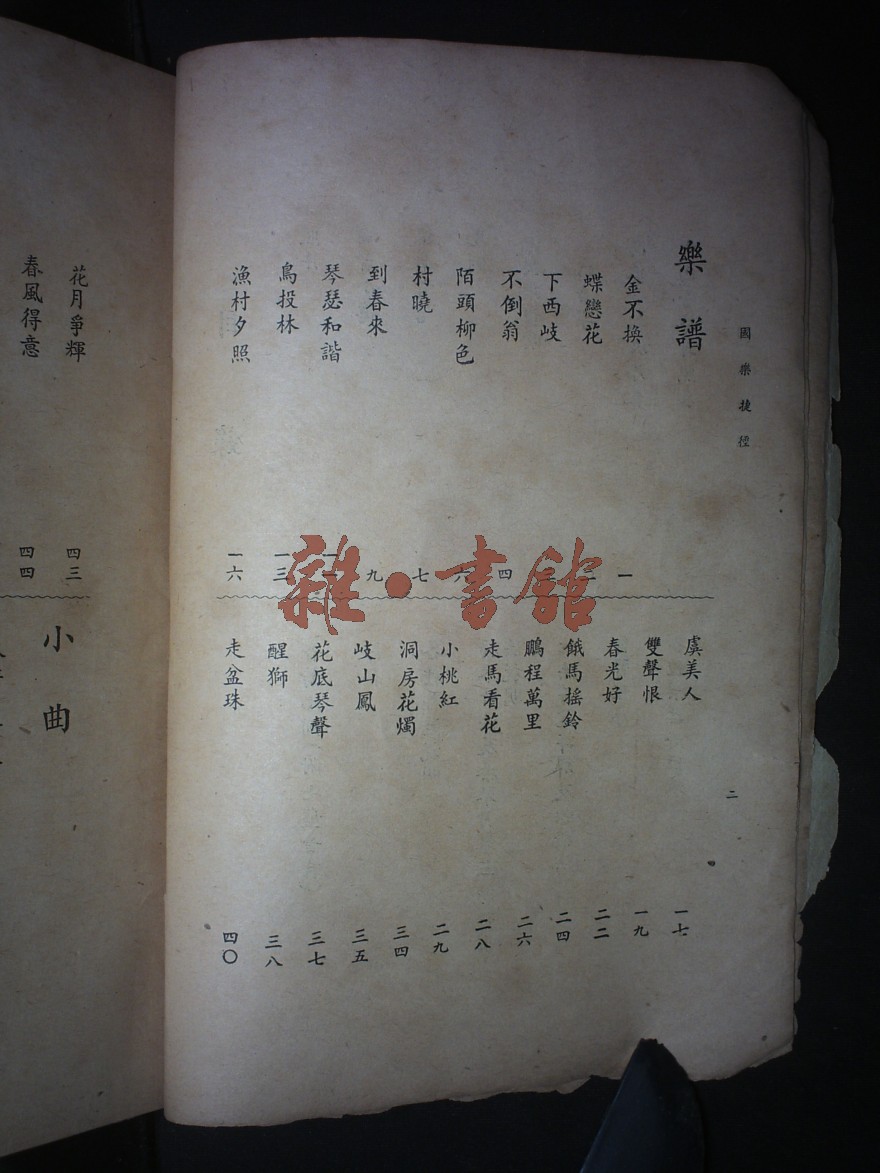 國樂捷徑
樂譜
金不換 一
蝶戀花 二
下西岐
不倒翁 四
陌頭柳色 六
村曉 七
到春來 九
琴瑟和諧
鳥投林 一三
漁村夕照 一六
虞美人 一七
雙聲恨 一九
春光好 二二
餓馬搖鈴 二四
鵬程萬里 二六
走馬看花 二八
小桃紅 二九
洞房花燭 三四
岐山鳳 三五
花底琴聲 三七
醒獅 三八
走盆珠 四〇
二
花月爭輝 四三
春風得意 四四
小曲
雜·書館